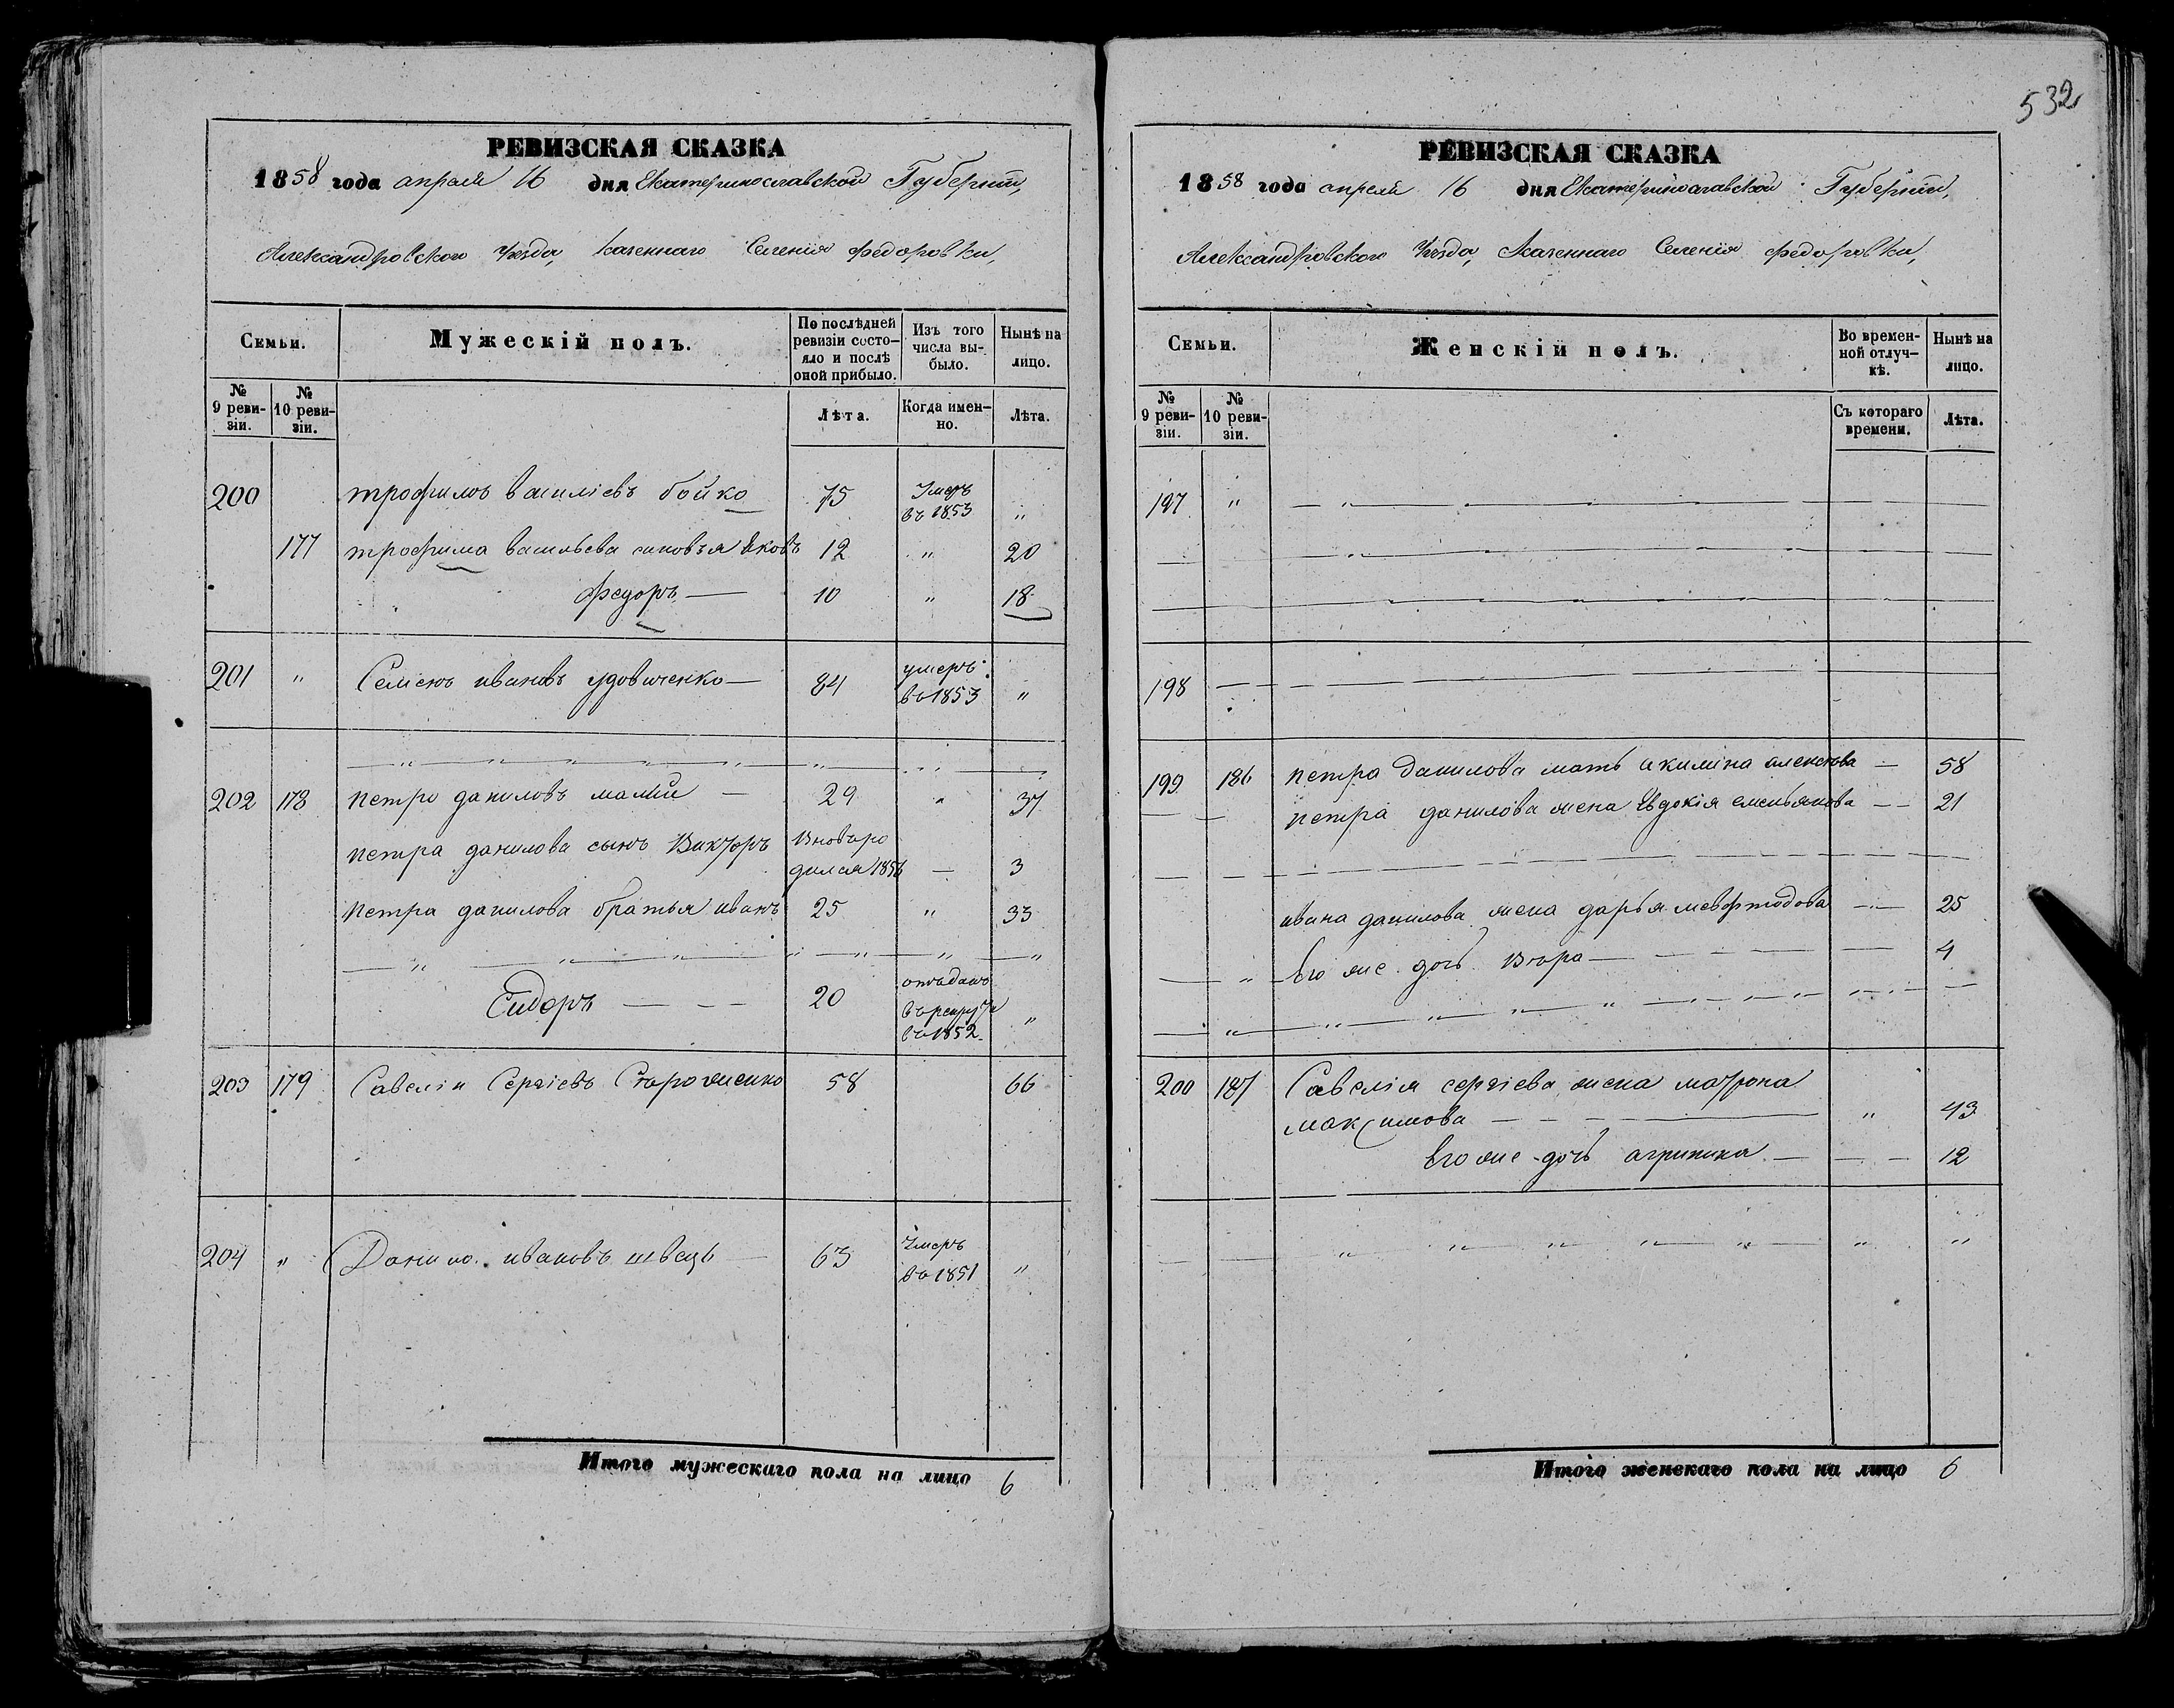 532
РЕВИЗСКАЯ СКАЗКА
1858 года апреля 16 дня Екатеринославской Губернии,
Александровского Уезда, казеннаго Селенія федоровки,
Семьи.
Мужескій полъ.
По послѣдней ревизіи состо-яло и послѣ оной прибыло.
Изъ того числа вы-было.
Нынѣ на лицо.
№ 9 реви-зіи.
№ 10 реви-зіи.
Лѣта.
Когда имен-но.
Лѣта.
200 трофимъ васильевъ бойко 75 Умеръ въ 1853 "
177 трофима васильева сыновья Яковъ 12 " 20
федоръ — 10 " 18
201 " Семенъ ивановъ удовиченко — 84 умеръ въ 1853 "
202 178 петро даниловъ малый — 29 " 37
петра данилова сынъ Викторъ вновь ро
дился 1856 — 3
петра данилова братья иванъ 25 " 33
Сидоръ — — — 20 отъданъ въ рекруты въ 1852 "
203 179 Савелій Сергіевъ Стороженко 58 66
204 " Данило ивановъ швець — 63 Умеръ въ 1851 "
Итого мужескаго пола на лицо 6
РЕВИЗСКАЯ СКАЗКА
1858 года апреля 16 дня Екатеринославской Губернии,
Александровского Уезда, Казеннаго Селенія федоровки,
Семьи.
Женскій полъ.
Во времен-ной отлуч-кѣ.
Нынѣ на лицо.
№ 9 реви-зіи.
№ 10 реви-зіи.
Съ котораго времени.
Лѣта.
197 "
198
199 186 петра данилова мать акилина — 58
петра данилова жена Евдокія емельянова — — 21
ивана данилова жена дарья — 25
" Его же дочь Вѣра — — — — 4
200 187 Савелія сергіева жена матрона
максимова — — — " 43
Его же дочь агрипина — — — 12
Итого женскаго пола на лицо 6